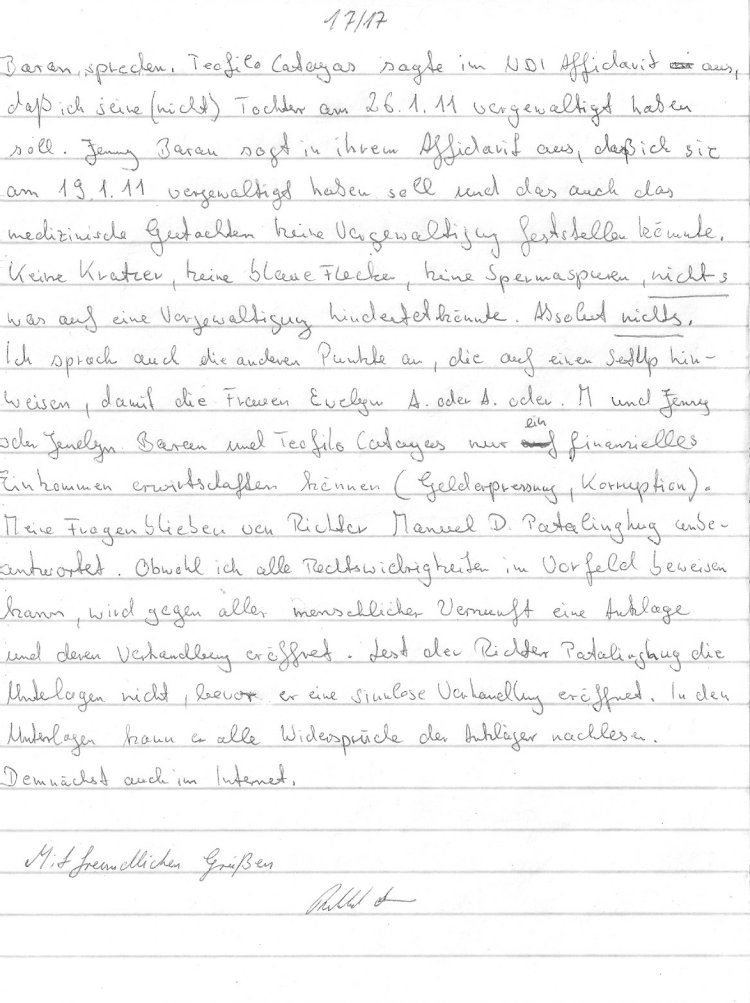 17/17
Baran, sprechen. Teofilo Catayas sagte im NDI Affidavit aus,
daß ich seine (nicht) Tochter am 26.1.11 vergewaltigt haben
soll. Jenny Baran sagt in ihrem Affidavit aus, daß ich sie
am 19.1.11 vergewaltigt haben soll und das auch das
medizinische Gutachten keine Vergewaltigung feststellen könnte.
Keine Kratzer, keine blaue Flecken, keine Spermaspuren, nichts
was auf eine Vergewaltigung hindeutet könnte. Absolut nichts.
Ich sprach auch die anderen Punkte an, die auf einen SetUp hin-
weisen, damit die Frauen Evelyn A. oder A. oder. M und Jenny
oder Jenelyn Baran und Teofilo Catayas nur ein finanzielles
Einkommen erwirtschaften können (Gelderpressung, Korruption).
Meine Fragen blieben von Richter Manuel D. Patalinghug unbe-
antwortet. Obwohl ich alle Rechtswidrigkeiten im Vorfeld beweisen
kann, wird gegen aller menschlicher Vernunft eine Anklage
und deren Verhandlung eröffnet. Lest der Richter Patalinghug die
Unterlagen nicht, bevor er eine sinnlose Verhandlung eröffnet. In den
Unterlagen kann er alle Widersprüche der Ankläger nachlesen.
Demnächst auch im Internet.
Mit freundlichen Grüßen